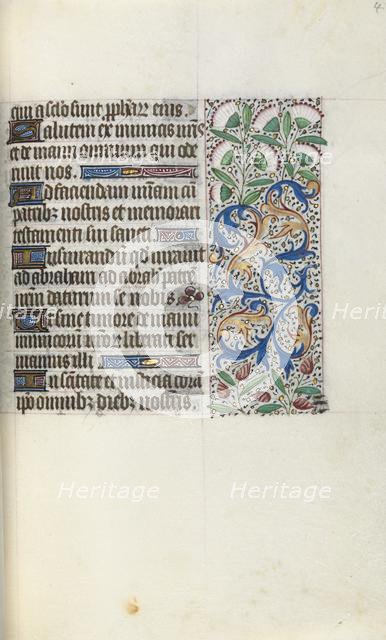 4
qui a seclo sunt pphar eius.
Salutem ex inimicis nris
et de manu omnium qui ode
runt nos.
Ad faciendam miam cu
patribz nostris et memorari
testamenti sui sancti
Iusiurandu qd iurauit
ad abraham ad abrah patre
nrm daturum se nobis
Ut sine timore de manu
inimicoru nror liberati ser
uiamus illi
In sanctitate et iusticia cora
ipo omnibz diebz nostris.
Heritage Heritage
Heritage Heritage